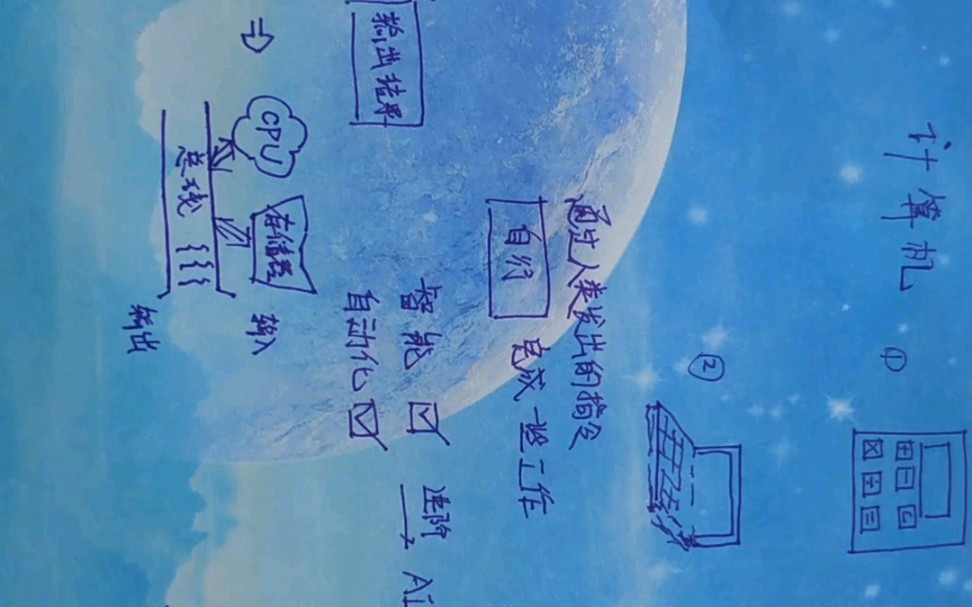 计算机 ①
②
通过人类发出的指令
自行 完成一些工作
智能 ☑ 进阶→ Ai
自动化 ☑
输出结果
CPU 存储器 输入
总线
输出